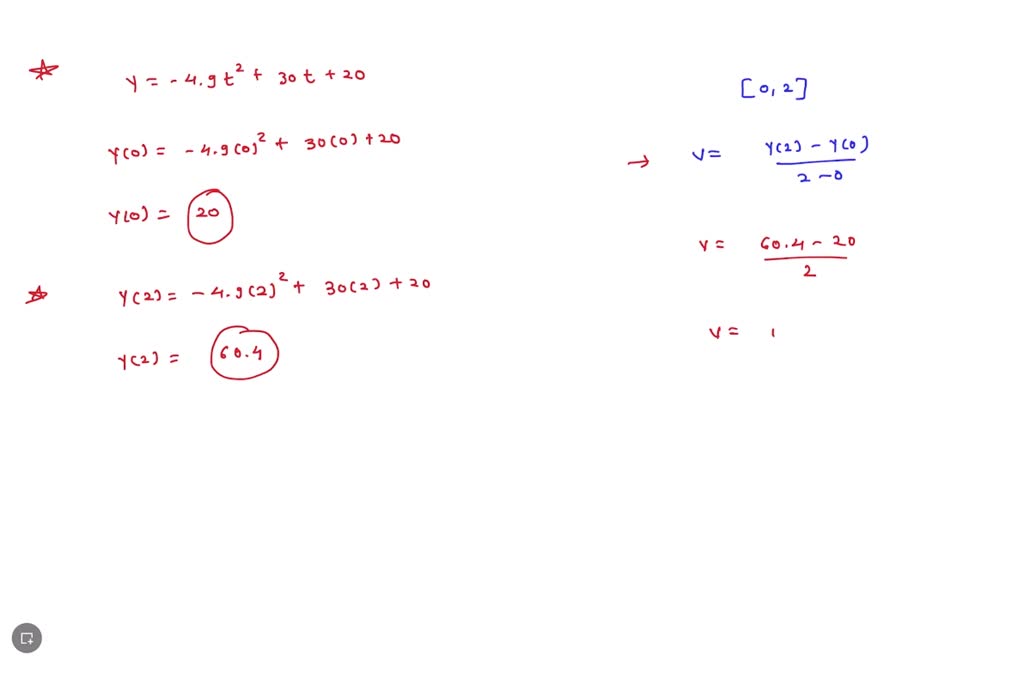 Y = -4.9t² + 30t + 20
Y(0) = -4.9(0)² + 30(0) + 20
Y(0) = 20
Y(2) = -4.9(2)² + 30(2) + 20
Y(2) = 60.4
[0,2]
→ V = Y(2) - Y(0) / 2-0
V = 60.4 - 20 / 2
V =